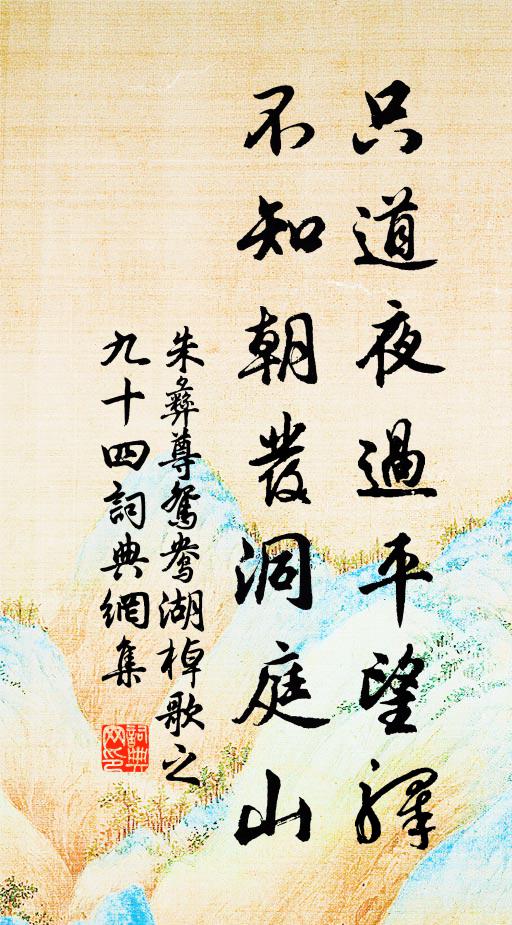 只道夜過平望驛
不知朝發洞庭山
朱彝尊鴛鴦湖棹歌之
九十四詞典網集
詞典網印